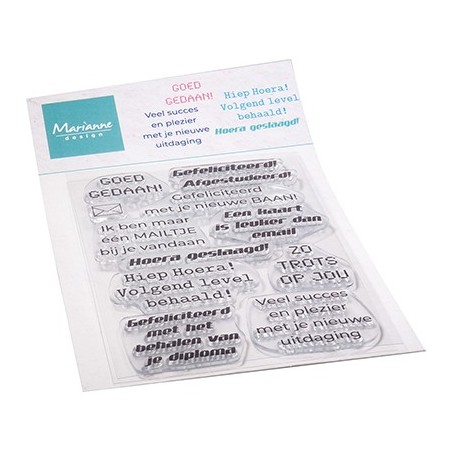 Marianne
design
GOED
GEDAAN!
Veel succes
en plezier
met je nieuwe
uitdaging
Hiep Hoera!
Volgend level
behaald!
Hoera geslaagd!
GOED
GEDAAN!
Gefeliciteerd!
Afgestudeerd!
Gefeliciteerd
met je nieuwe BAAN!
Ik ben maar
één MAILTJE
bij je vandaan
Een kaart
is leuker dan
email
Hoera geslaagd!
Hiep Hoera!
Volgend level
behaald!
ZO
TROTS
OP JOU
Gefeliciteerd
met het
behalen van
je diploma
Veel succes
en plezier
met je nieuwe
uitdaging